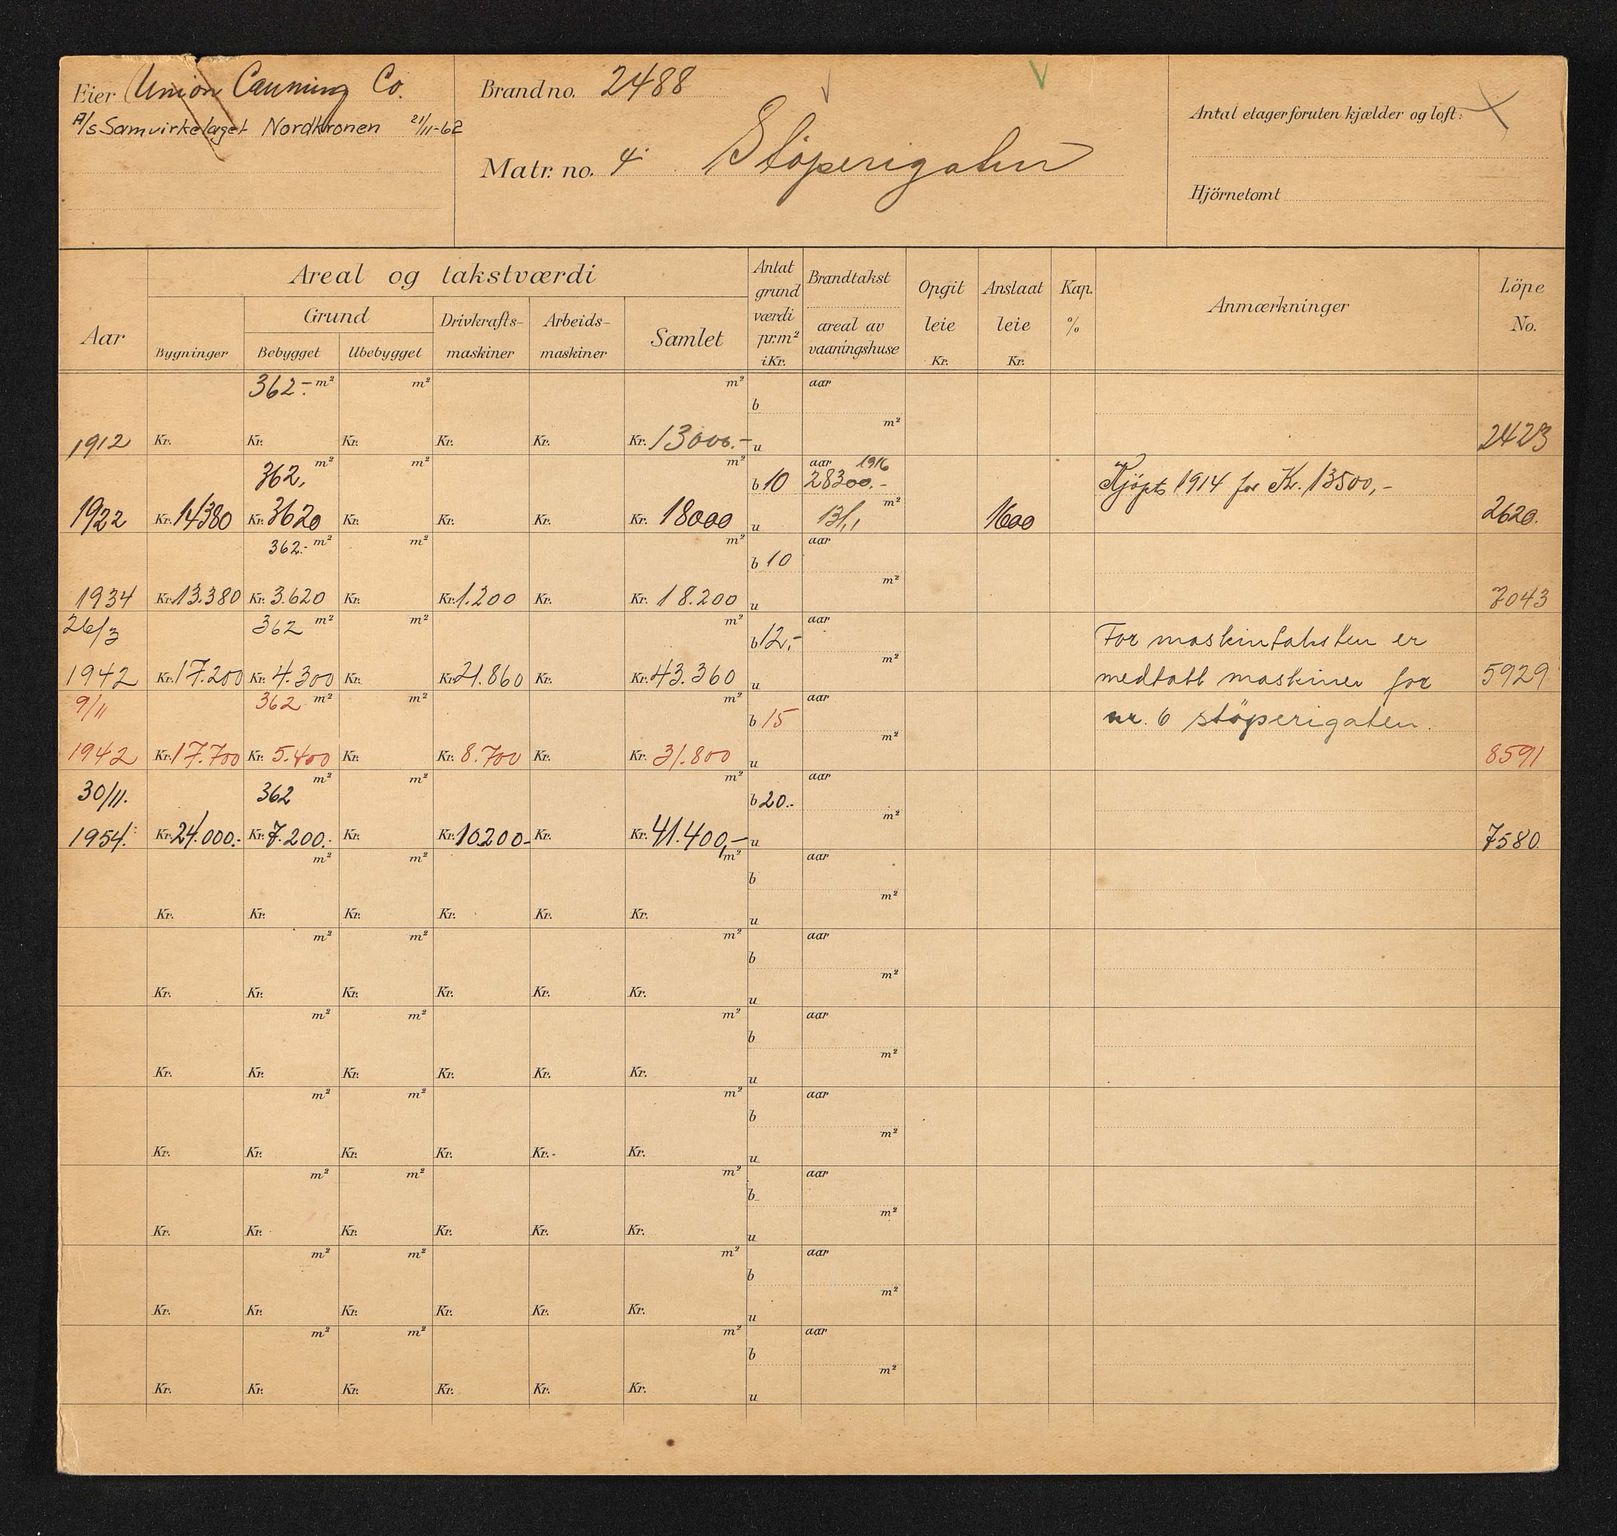 Eier Union Canning Co.
A/s Samvirkelaget Nordkronen 21/11-62
Brand no. 2488
Matr. no. 4 Støperigaten
Antal etager foruten kjælder og loft:
Hjörnetomt
Aar
Areal og takstværdi
Bygninger
Grund
Bebygget Ubebygget
Drivkrafts-
maskiner
Arbeids-
maskiner
Samlet
Antat
grund
værdi
pr.m²
i Kr.
Brandtakst
areal av
vaaningshuse
Opgit
leie
Kr.
Anslaat
leie
Kr.
Kap.
%
Anmærkninger
Löpe
No.
362.- m² m² m² aar
b
m²
1912 Kr. Kr. Kr. Kr. Kr. Kr. 13000.- u 2423
362, m² m² m² aar 1916
b 10 28300.- Kjøpt 1914 for Kr. 13500,-
m²
1922 Kr. 14380 Kr. 3620 Kr. Kr. Kr. Kr. 18000 u 131,1 1600 2620.
362.- m² m² m² aar
b 10
m²
1934 Kr. 13.380 Kr. 3.620 Kr. Kr. 1.200 Kr. Kr. 18.200 u 7043
26/3 362 m² m² m² aar
b 12,- For maskintaksten er
m²
1942 Kr. 17.200 Kr. 4.300 Kr. Kr. 21.860 Kr. Kr. 43.360 u medtatt maskiner for 5929
9/11 362 m² m² m² aar
b 15 nr. 6 støperigaten.
m²
1942 Kr. 17.700 Kr. 5.400 Kr. Kr. 8.700 Kr. Kr. 31.800 u 8591
30/11. 362 m² m² m² aar
b 20.-
m²
1954. Kr. 24.000.- Kr. 7.200.- Kr. Kr. 10200- Kr. Kr. 41.400,- u 7580
m² m² m² aar
b
m²
Kr. Kr. Kr. Kr. Kr. Kr. u
m² m² m² aar
b
m²
Kr. Kr. Kr. Kr. Kr. Kr. u
m² m² m² aar
b
m²
Kr. Kr. Kr. Kr. Kr. Kr. u
m² m² m² aar
b
m²
Kr. Kr. Kr. Kr. Kr. Kr. u
m² m² m² aar
b
m²
Kr. Kr. Kr. Kr. Kr. Kr. u
m² m² m² aar
b
m²
Kr. Kr. Kr. Kr. Kr. Kr. u
m² m² m² aar
b
m²
Kr. Kr. Kr. Kr. Kr. Kr. u